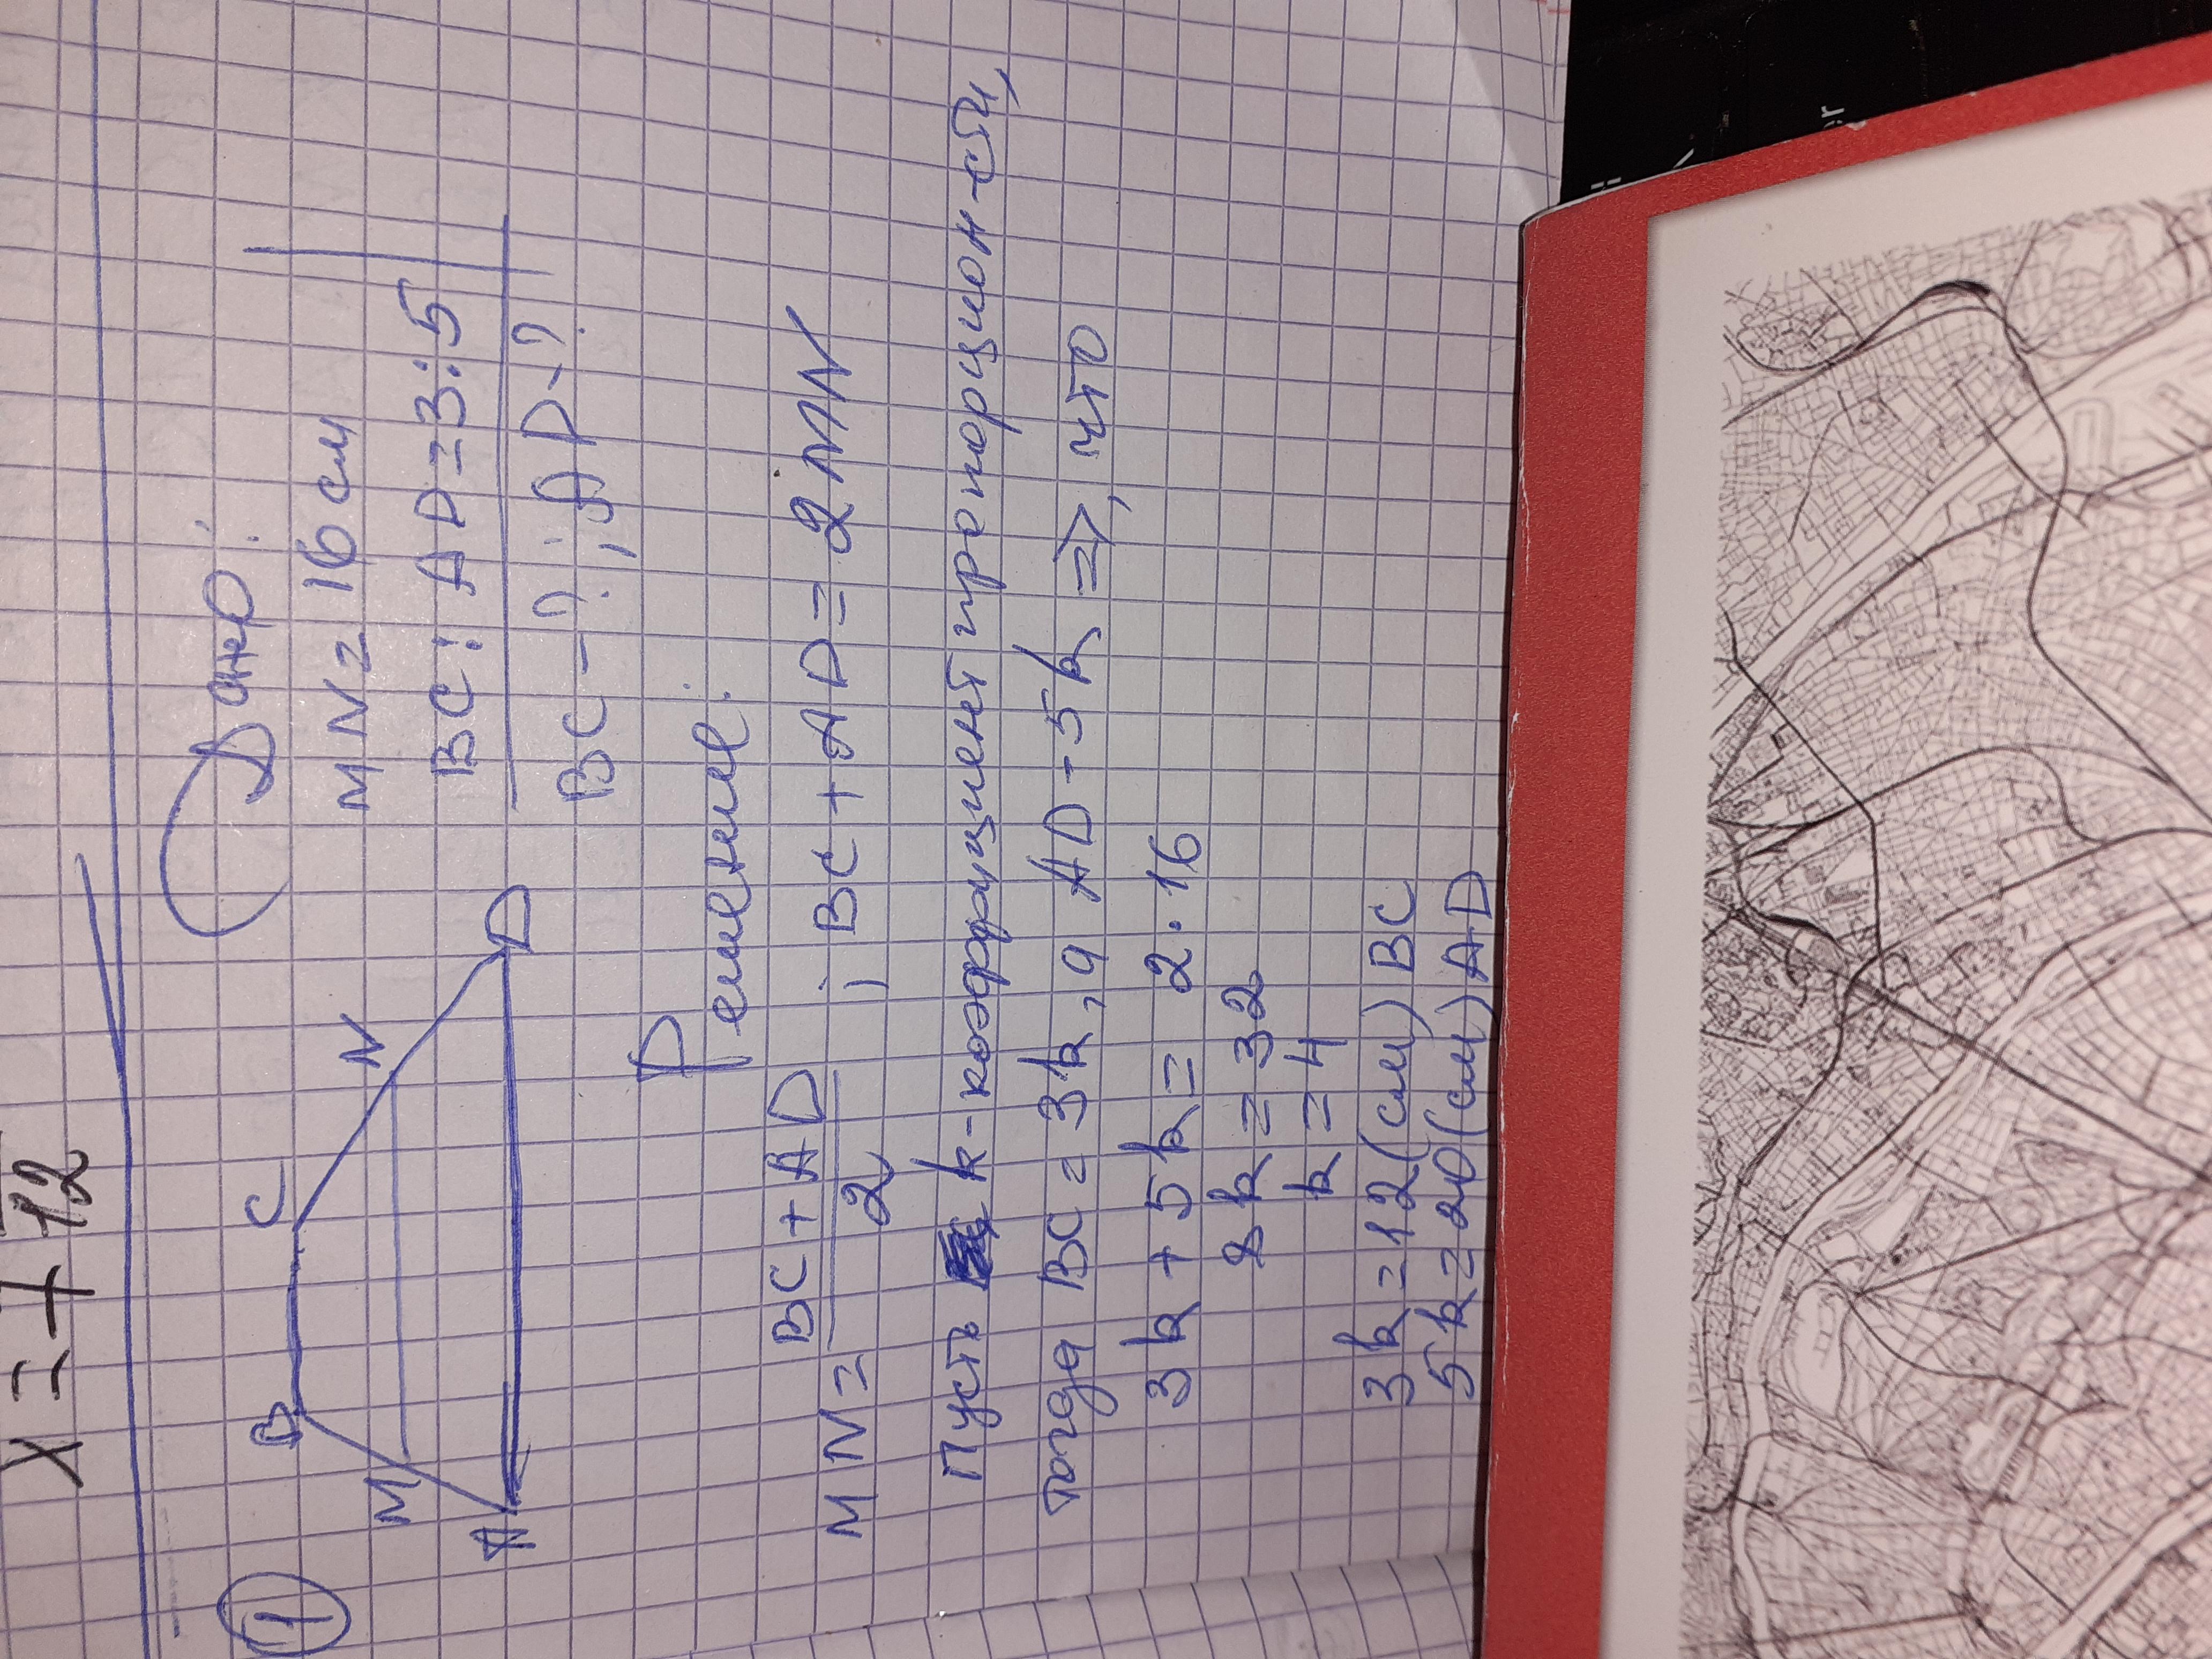 x = +12
1
Дано:
B C
M N
A D
MN = 16 см
BC : AD = 3:5
BC - ? ; AD - ?
Решение:
MN = BC + AD / 2 ; BC + AD = 2MN
Пусть k - коэффициент пропорцион-сти,
тогда BC = 3k, а AD - 5k =>, что
3k + 5k = 2 · 16
8k = 32
k = 4
3k = 12 (см) BC
5k = 20 (см) AD